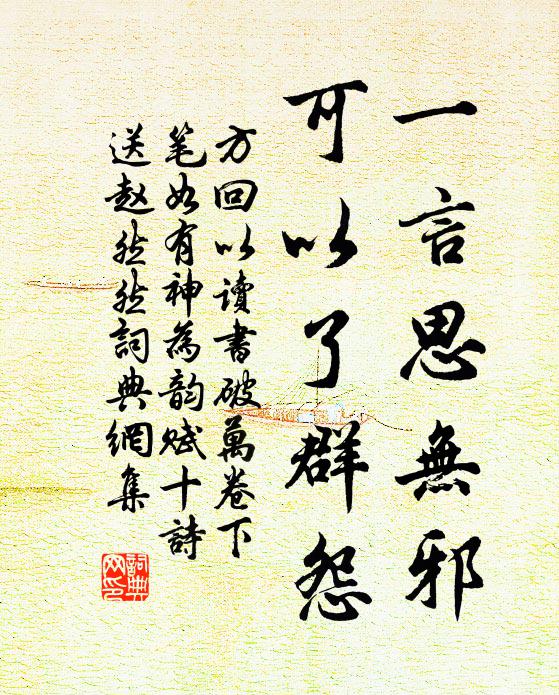 一言思無邪
可以了群怨
方回以讀書破萬卷下
笔如有神為韵赋十詩
送赵然然詞典網集
詞典网印